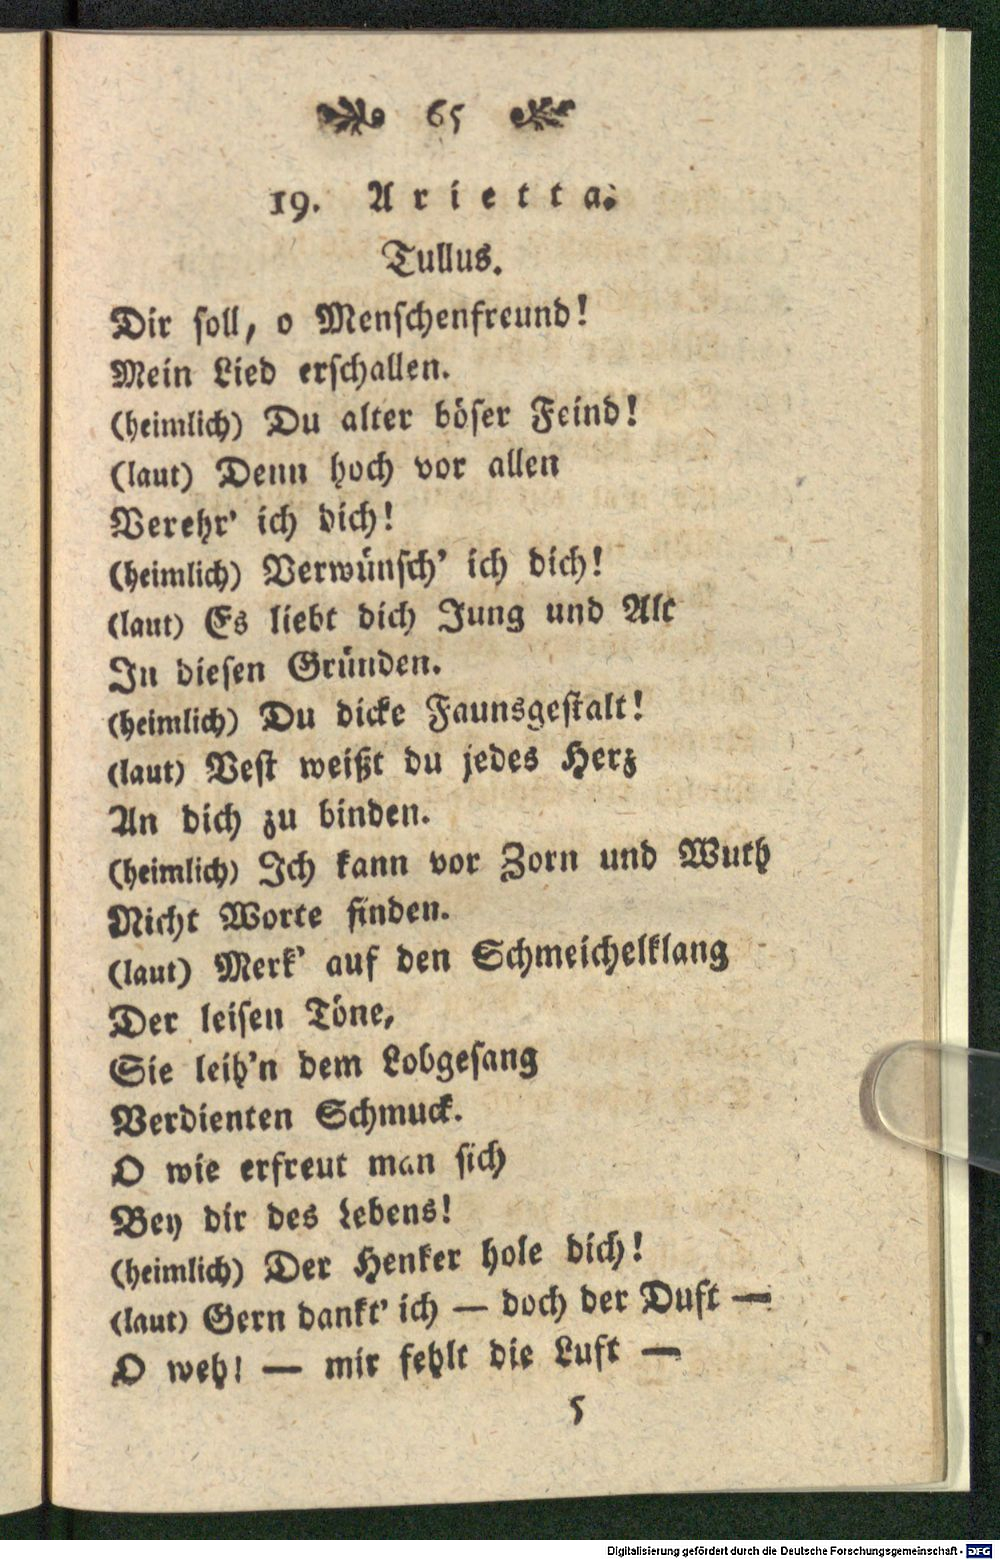 65
19. Arietta.
Tullus.
Dir soll, o Menschenfreund!
Mein Lied erschallen.
(heimlich) Du alter böser Feind!
(laut) Denn hoch vor allen
Verehr' ich dich!
(heimlich) Verwünsch' ich dich!
(laut) Es liebt dich Jung und Alt
In diesen Gründen.
(heimlich) Du dicke Faunsgestalt!
(laut) Vest weißt du jedes Herz
An dich zu binden.
(heimlich) Ich kann vor Zorn und Wuth
Nicht Worte finden.
(laut) Merk' auf den Schmeichelklang
Der leisen Töne,
Sie leih'n dem Lobgesang
Verdienten Schmuck.
O wie erfreut man sich
Bey dir des Lebens!
(heimlich) Der Henker hole dich!
(laut) Gern dankt' ich — doch der Duft —
O weh! — mir fehlt die Luft —
5
Digitalisierung gefördert durch die Deutsche Forschungsgemeinschaft - DFG